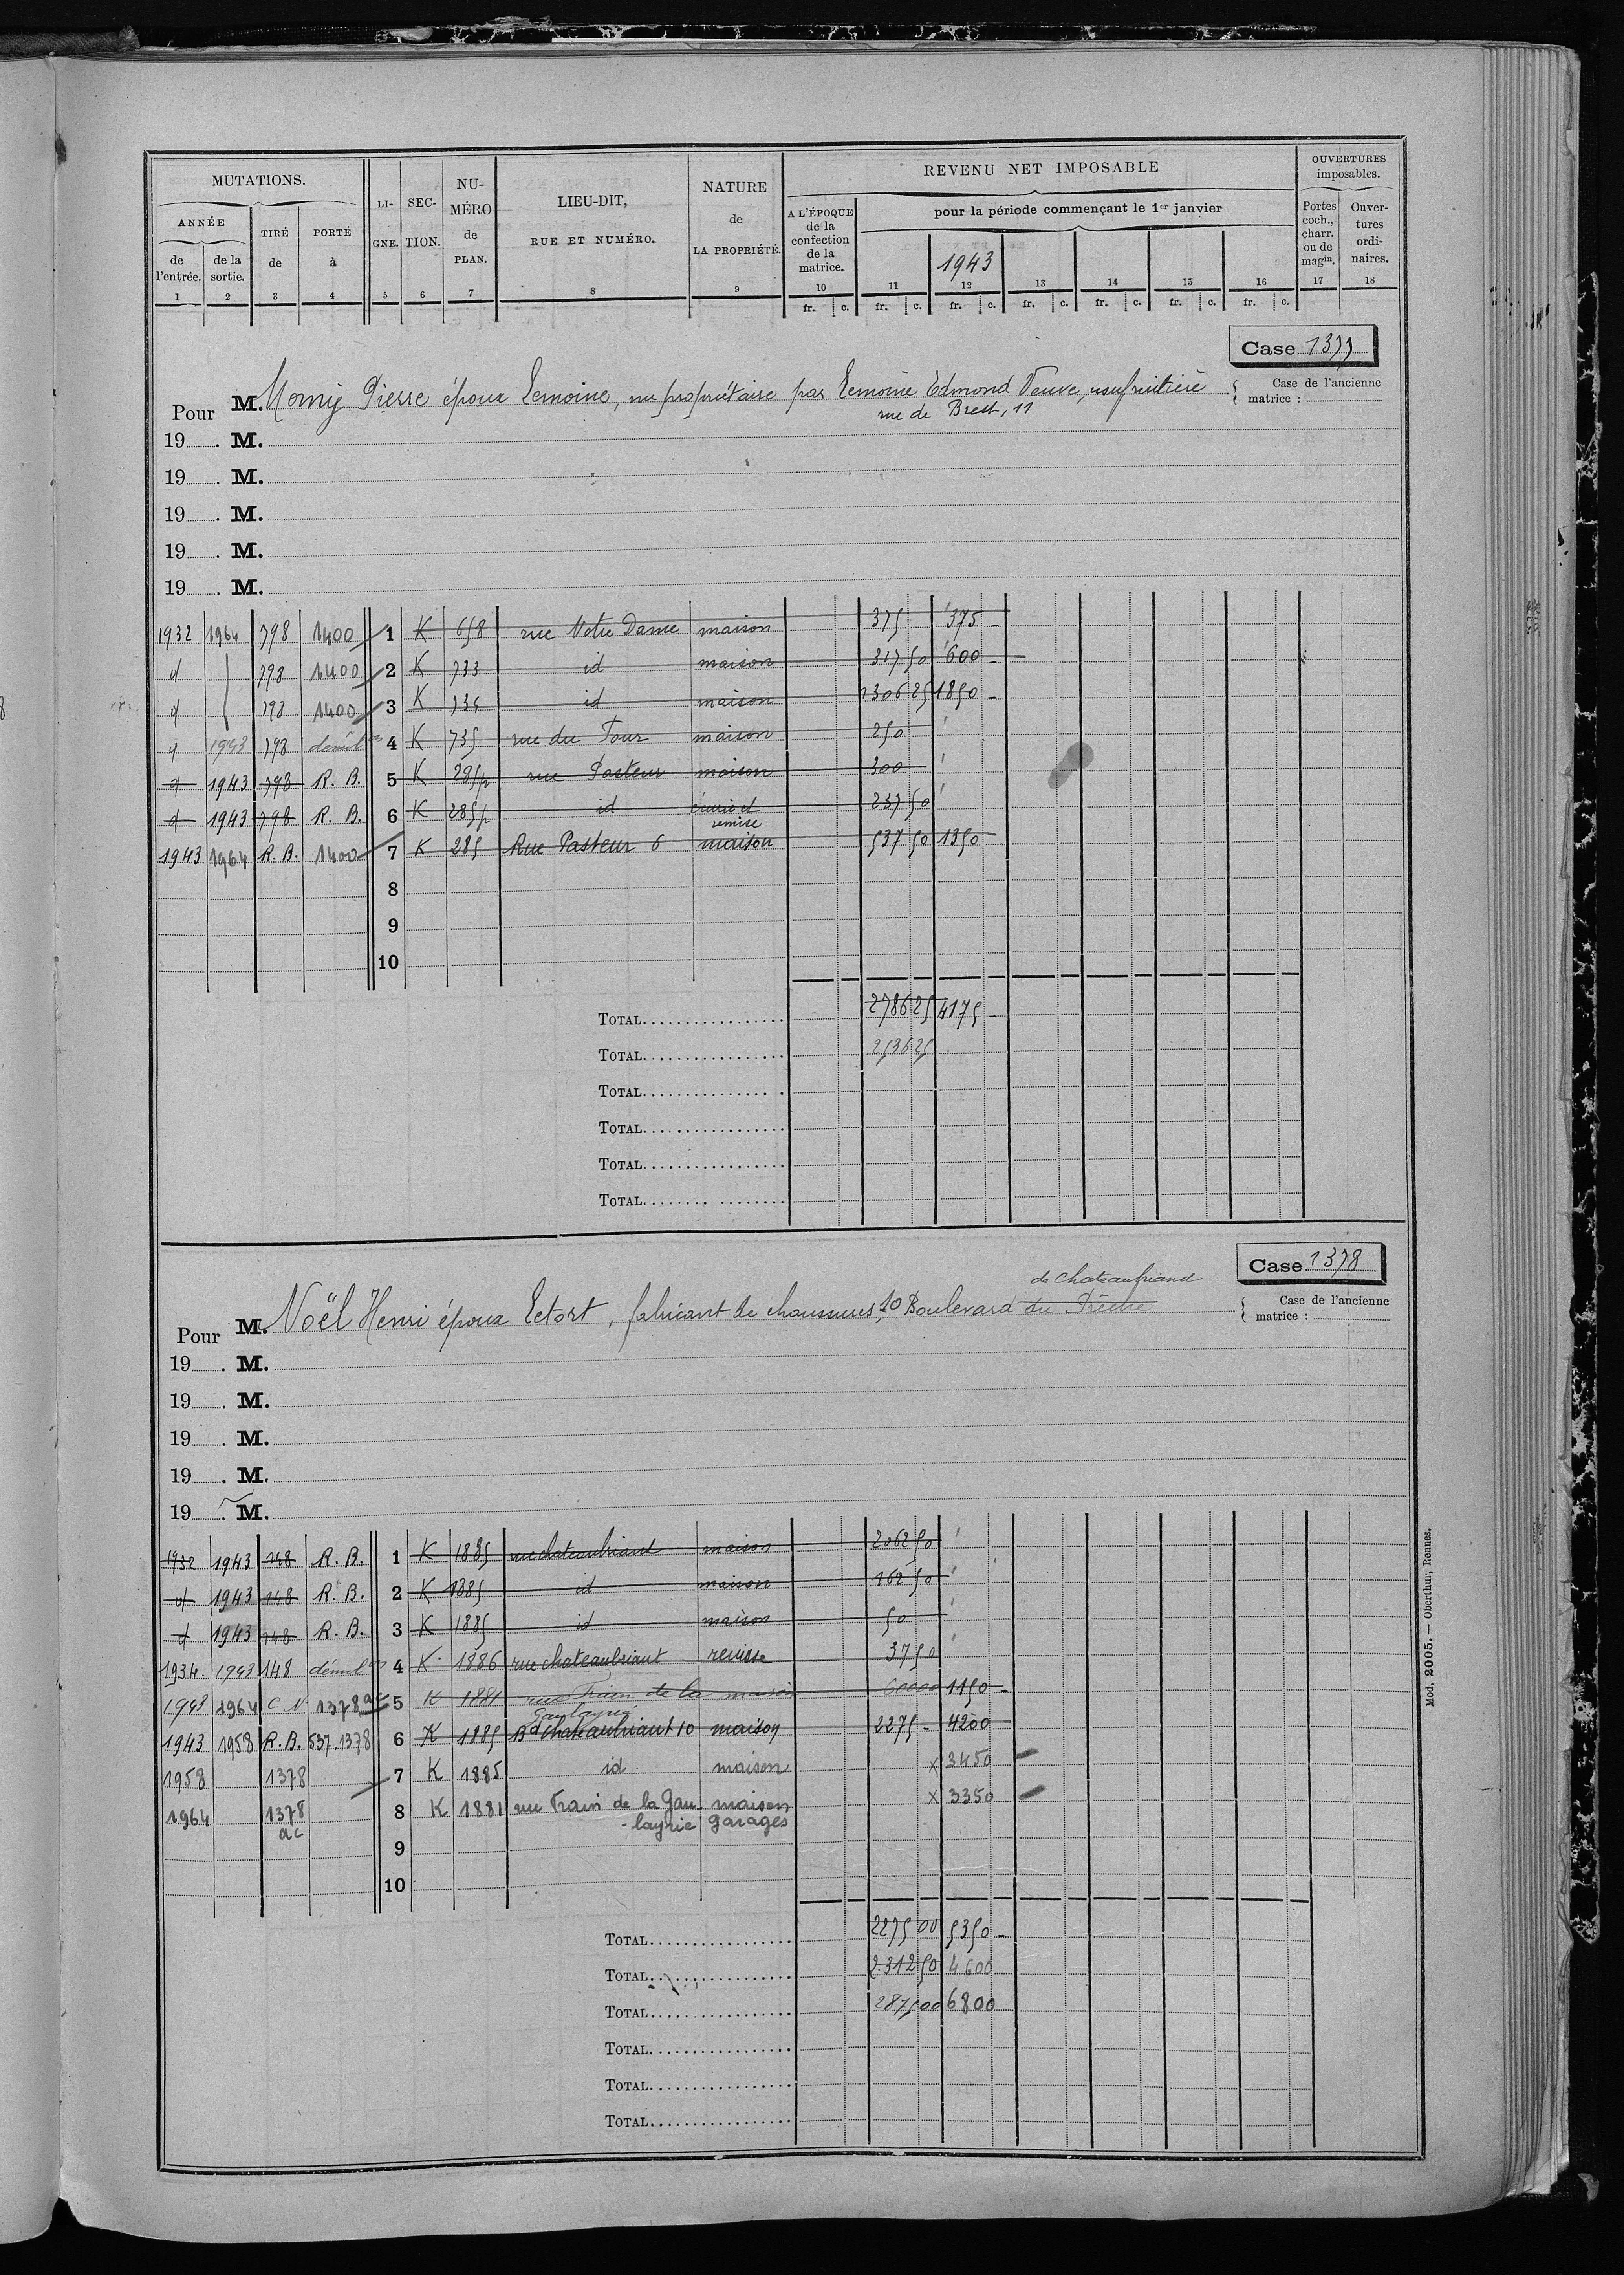 MUTATIONS.
ANNÉE
de l'entrée. de la sortie. TIRÉ de PORTÉ à
LIGNE. SECTION. NUMÉRO de PLAN. LIEU-DIT, RUE ET NUMÉRO. NATURE de LA PROPRIÉTÉ.
REVENU NET IMPOSABLE
A L'ÉPOQUE de la confection de la matrice. pour la période commençant le 1er janvier
1943
OUVERTURES imposables.
Portes coch., charr. ou de magin. Ouvertures ordinaires.
1 2 3 4 5 6 7 8 9 10 11 12 13 14 15 16 17 18
fr. c. fr. c. fr. c. fr. c. fr. c. fr. c. fr. c.
Case 1377
Case de l'ancienne matrice :
Pour M. Pierre époux Lemoine, nu propriétaire par Lemoine Edmond Veuve, usufruitière
rue de Brest, 11
19 . M.
19 . M.
19 . M.
19 . M.
19 . M.
1932 1964 798 1400 1 K 658 rue Notre Dame maison 375 375 -
d 798 1400 2 K 733 id maison 317 50 600 -
d 798 1400 3 K 734 id maison 1306 25 1850 -
d 1943 798 démol on 4 K 735 rue du Four maison 250
d 1943 798 R. B. 5 K 285p rue Pasteur maison 300
d 1943 798 R. B. 6 K 285p id écurie et remise 237 50
1943 1964 R. B. 1400 7 K 285 Rue Pasteur 6 maison 537 50 1350 -
8
9
10
TOTAL 2786 25 4175 -
TOTAL 2536 25
TOTAL
TOTAL
TOTAL
TOTAL
Case 1378
Case de l'ancienne matrice :
de Chateaubriand
Pour M. Noël Henri époux Lectort, fabricant de chaussures, 10 Boulevard du Prêche
19 . M.
19 . M.
19 . M.
19 . M.
19 . M.
1932 1943 148 R. B. 1 K 1885 rue chateaubriant maison 2062 50
d 1943 148 R. B. 2 K 1885 id maison 162 50
d 1943 148 R. B. 3 K 1885 id maison 50
1934 1943 148 démol on 4 K 1886 rue chateaubriant remise 37 50
1943 1964 C N 1378 ac 5 K 1881 rue Frain de la Gaulayrie maison 600 00 1150 -
1943 1958 R. B. 537.1378 6 K 1885 Bd Chateaubriant 10 maison 2275 - 4200 -
1958 1378 7 K 1885 id maison x 3450
1964 1378 ac 8 K 1881 rue Frain de la Gau- maison x 3350
-layrie garages
9
10
TOTAL 2275 00 5350 -
TOTAL 2312 50 4600
TOTAL 2875 00 6800
TOTAL
TOTAL
TOTAL
Mod. 2005. — Oberthur, Rennes.